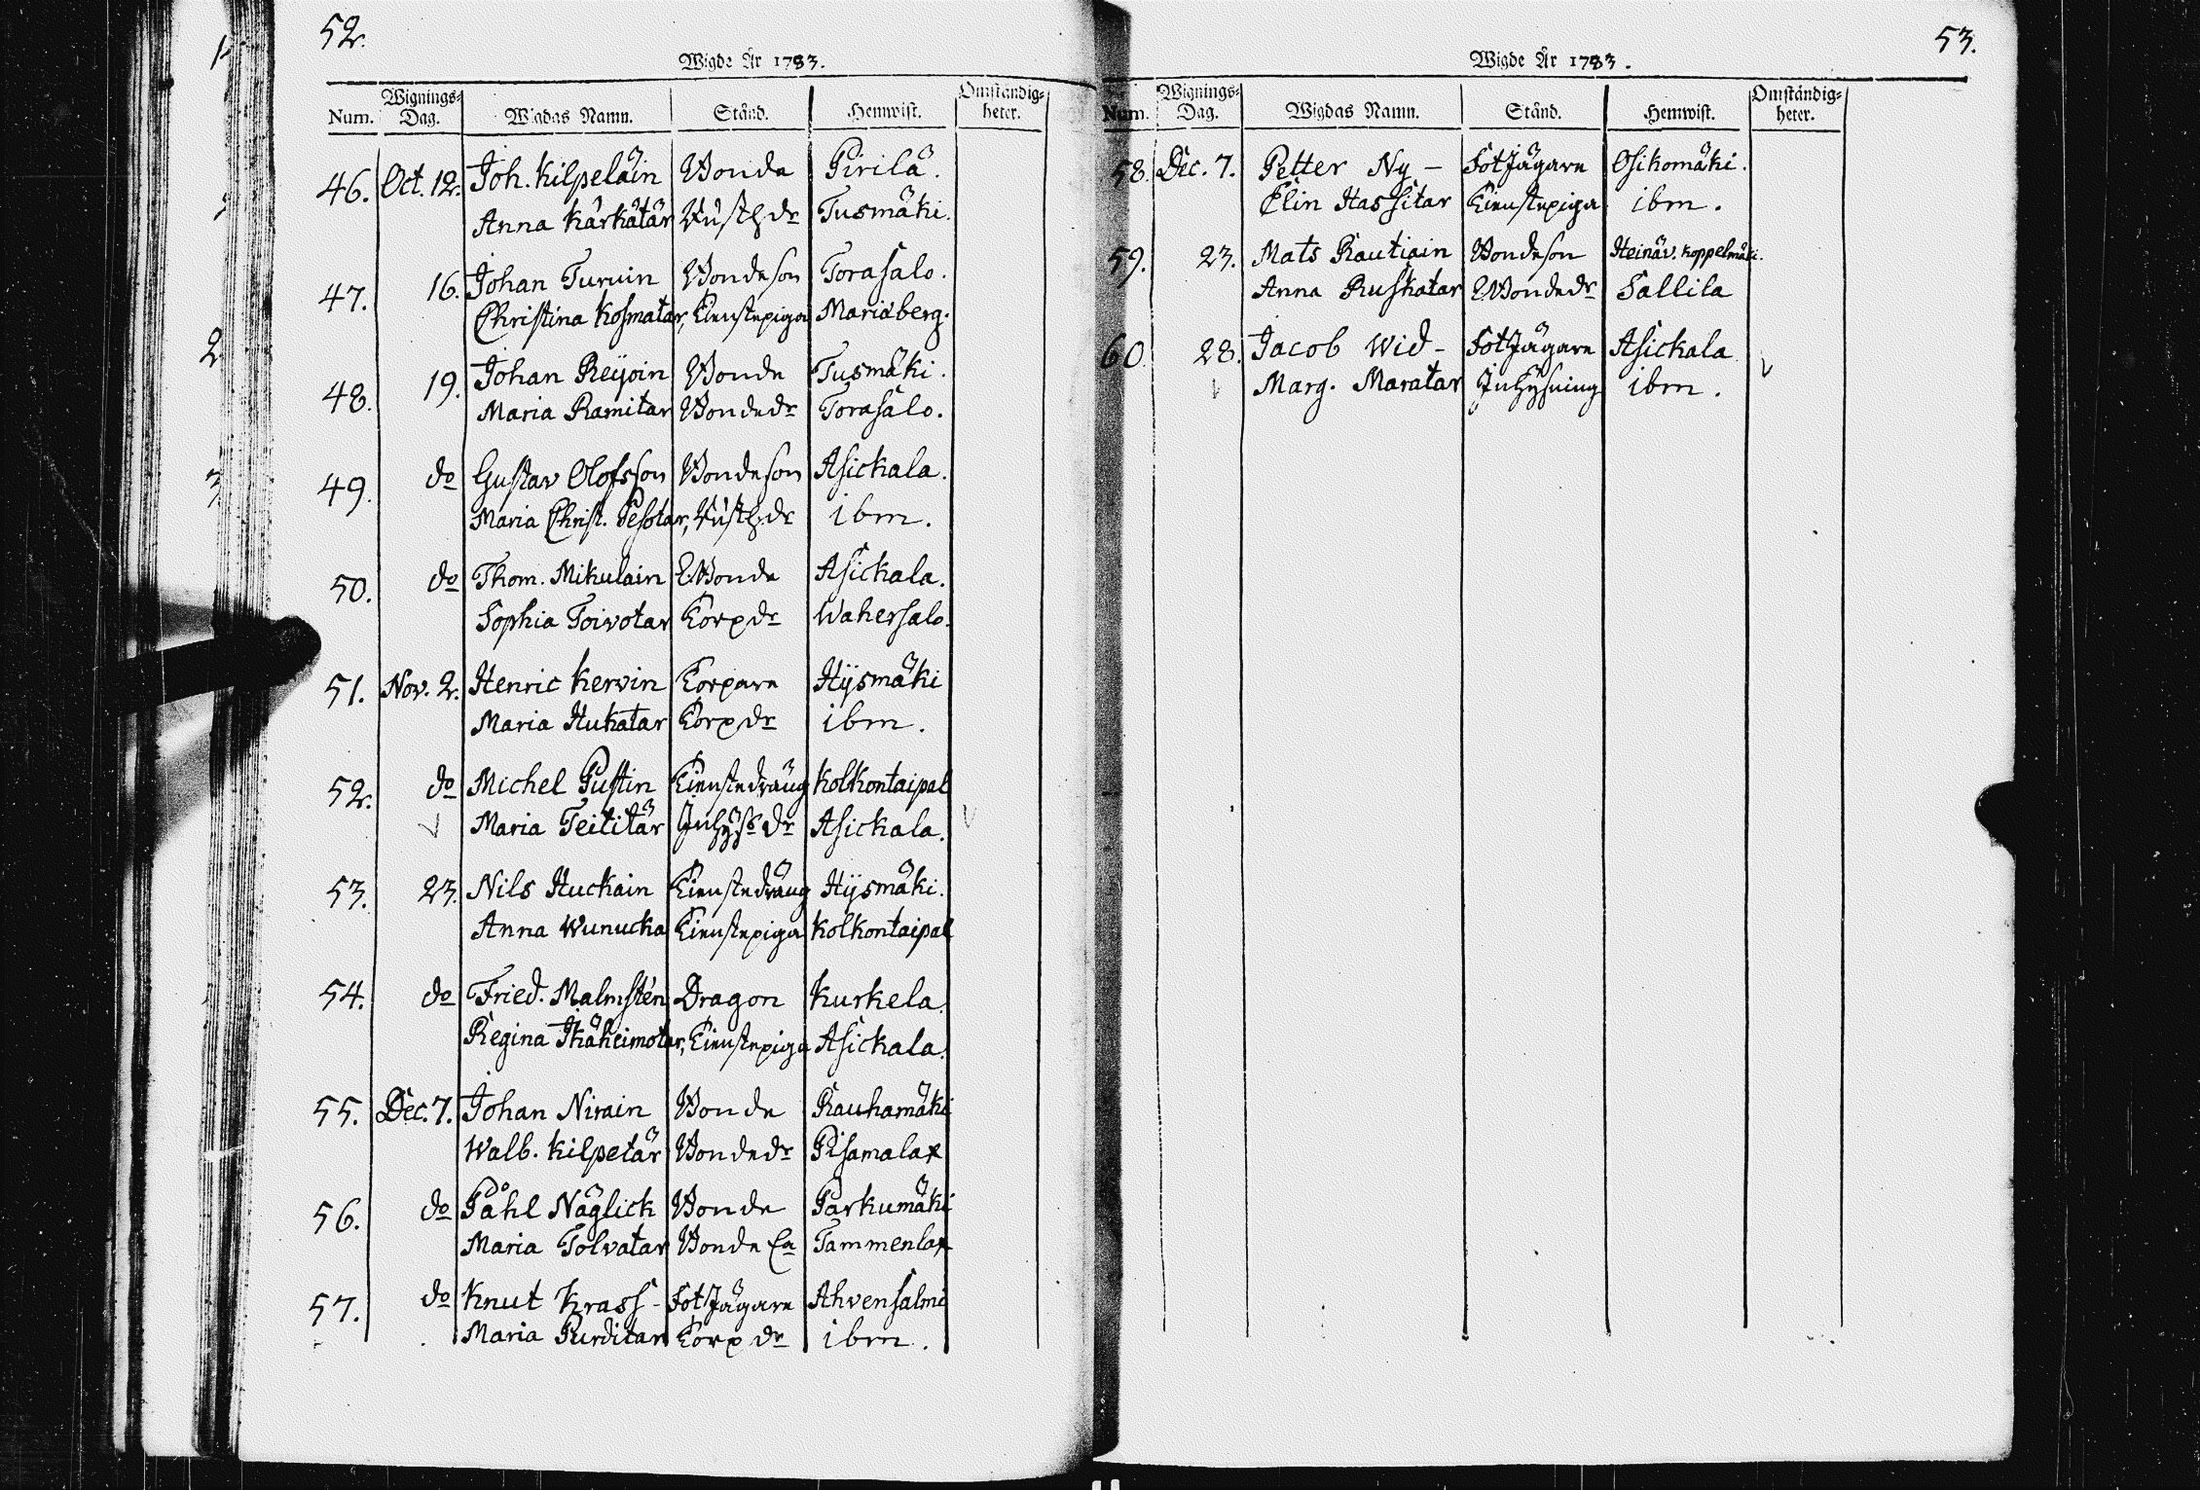 52.
Wigde År 1783.
Num. Wignings-Dag. Wigdas Namn. Stånd. Hemwist. Omständig-heter.
46. Oct. 12. Joh. Kilpeläin Bonde Pirilä.
Anna Kärkätär Rusth.dr Tusmäki.
47. 16. Johan Turuin Bondeson Torasalo.
Christina Kosmatar, Tienstepiga Mariæberg.
48. 19. Johan Reijoin Bonde Tusmäki.
Maria Ramitar Bondedr Torasalo.
49. do Gustav Olofsson Bondeson Asickala.
Maria Christ. Pesotar, Rusth.dr ibm.
50. do Thom. Mikulain Bonde Asickala.
Sophia Toivotar Torpdr Wahersalo.
51. Nov. 2. Henric Kervin Torpare Hÿsmäki
Maria Hukatar Torpdr ibm.
52. do Michel Pustin Tienstedräng Kolkontaipal
Maria Teititär Inhys dr Asickala.
53. 23. Nils Huckain Tienstedräng Hÿsmäki.
Anna Wunucka Tienstepiga Kolkontaipal
54. do Fried. Malmstén Dragon Kurkela.
Regina Ikäheimotar, Tienstepiga Asickala.
55. Dec. 7. Johan Nirain Bonde Rauhamäki
Walb. Kilpetär Bondedr Pisamalax
56. do Påhl Näglick Bonde Parkumäki
Maria Tolvatar Bonde Tammenlax
57. do Knut Krass- FotJägare Ahvensalmi
Maria Purditar Torpdr ibm.
53.
Wigde År 1783.
Num. Wignings-Dag. Wigdas Namn. Stånd. Hemwist. Omständig-heter.
58. Dec. 7. Petter Ny- FotJägare Osikomäki.
Elin Hassitar Tienstepiga ibm.
59. 23. Mats Rautiain Bondeson Heinäv. Koppelmäki.
Anna Ruskatar Bondedr Sallila
60. 28. Jacob Wid- FotJägare Asickala
Marg. Maratar Inhysning ibm.